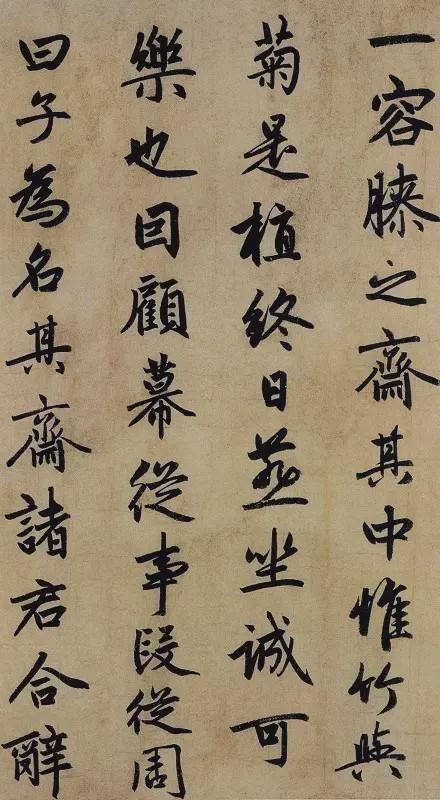 一容膝之齋其中惟竹與
菊是植終日燕坐誠可
樂也回顧幕從事段從周
曰子為名其齋諸君合辭